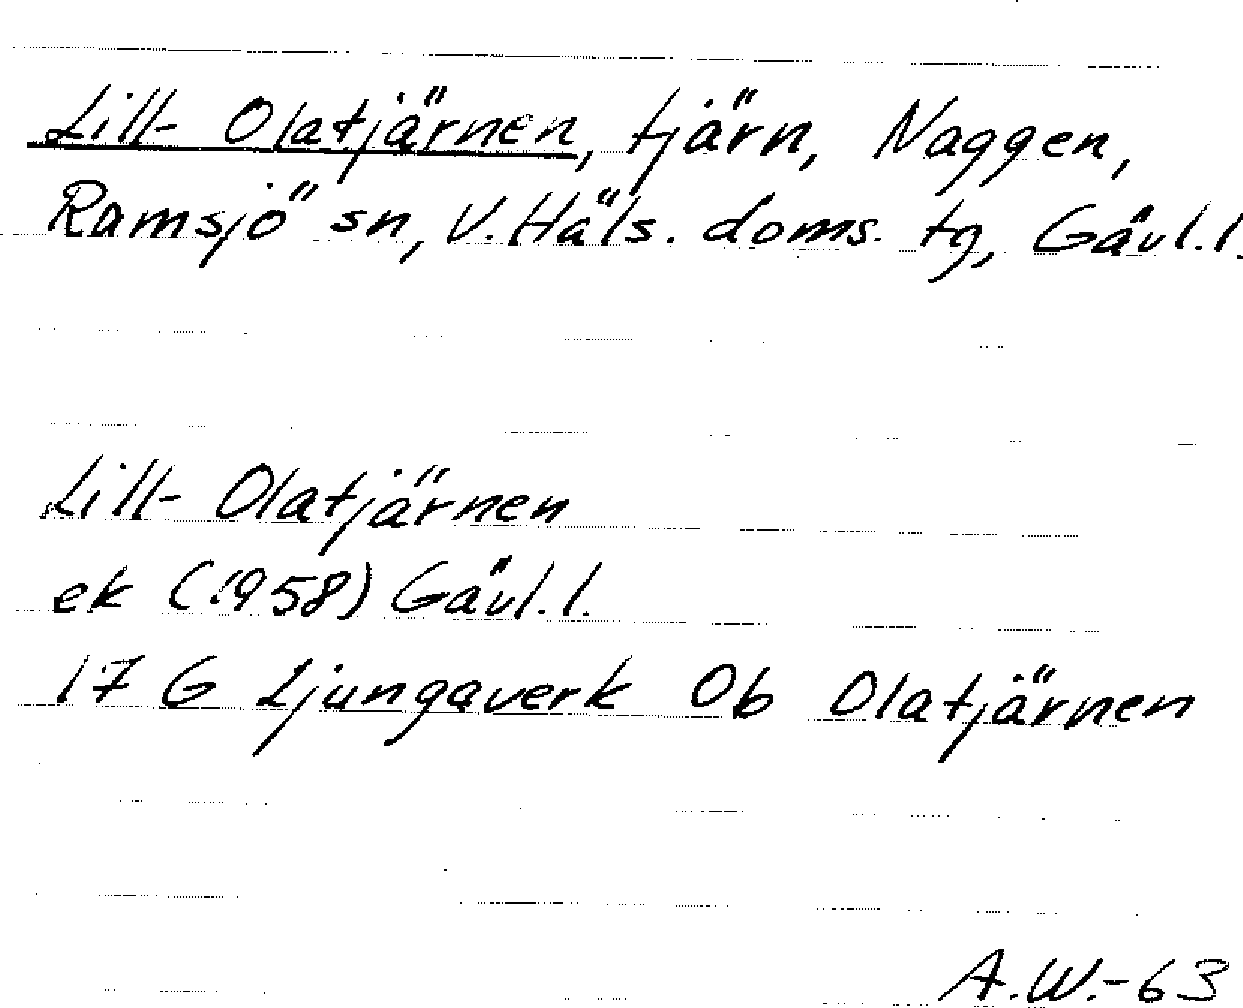 Lill-Olatjärnen, tjärn, Naggen,
Ramsjö sn, V. Häls. doms. tg, Gävl.l.
Lill-Olatjärnen
ek (1958) Gävl.l.
17 G Ljungaverk Ob Olatjärnen
A.W.-63